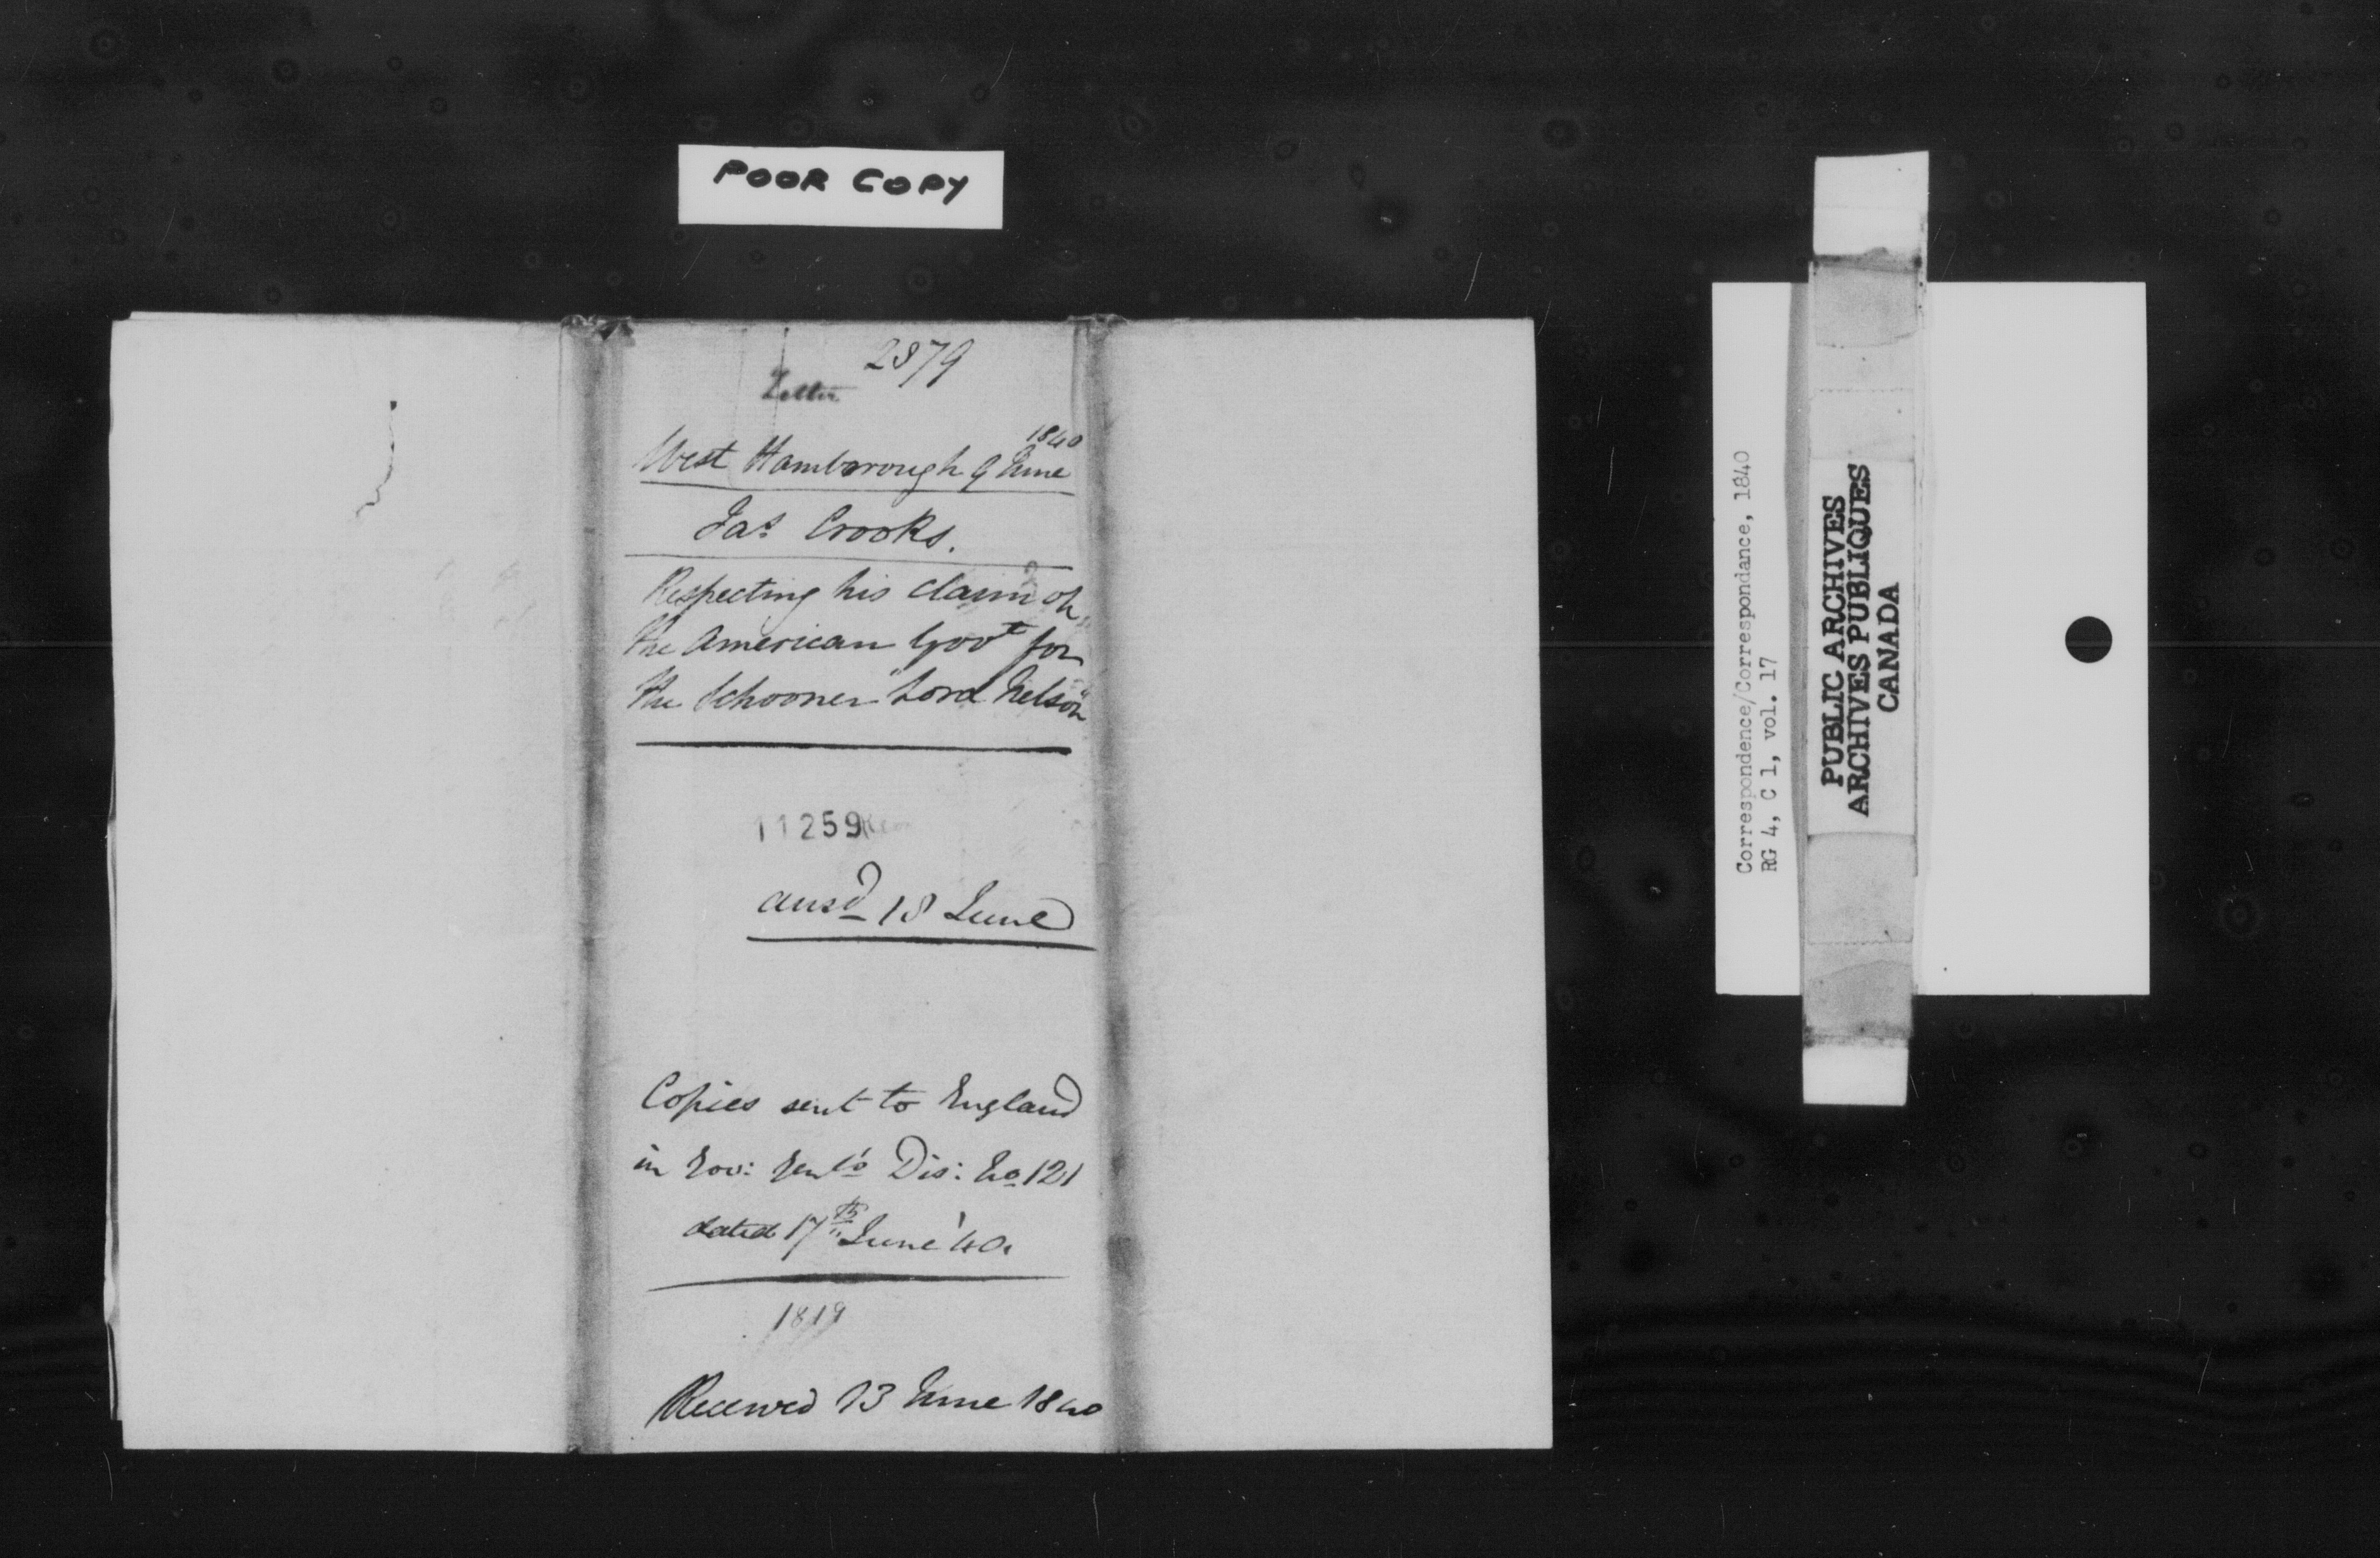 POOR COPY
2879
Letter
1840
West Flamborough 9 June
Jas Crooks.
Respecting his claim on
the American Govt for
the Schooner "Lord Nelson"
11259
ansd 18 June
Copies sent to England
in Gov: Genl's Dis: No 121
dated 17th June '40.
1819
Received 13 June 1840
Correspondence/Correspondance, 1840
RG 4, C 1, vol. 17
PUBLIC ARCHIVES
ARCHIVES PUBLIQUES
CANADA